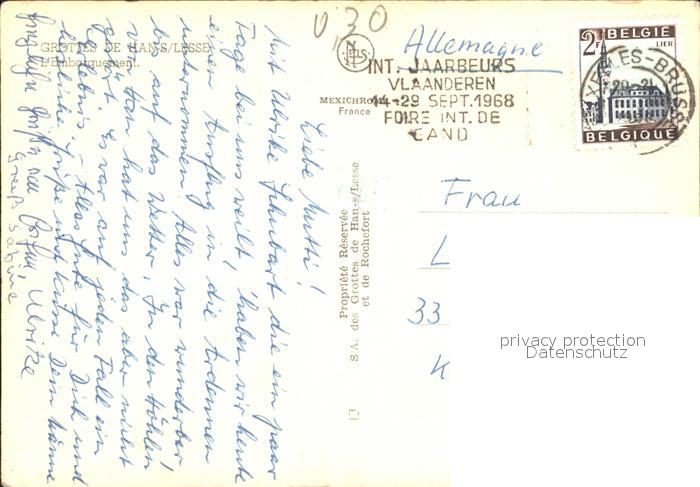 GROTTES DE HAN-S/LESSE
L'Embarquement.
V 30
NELS
MEXICHROME
France
Allemagne
INT. JAARBEURS
VLAANDEREN
14-29 SEPT.1968
FOIRE INT. DE
GAND
2F
BELGIË
LIER
BELGIQUE
Propriété Réservée
S.A. des Grottes de Han-s/Lesse
et de Rochefort
Frau
L
33
K
privacy protection
Datenschutz
Liebe Mutti!
Mit Ulrike Schubart die ein paar
Tage bei uns weilt, haben wir heute
einen Ausflug in die Ardennen
unternommen. Alles war wunderbar
bis auf das Wetter. In den Höhlen
von Han hat uns das aber nicht
gestört. Es war auf jeden Fall ein
Erlebnis. Alles Gute für Dich und
herzliche Grüße und Küsse Dein Hänne
Ulrike
Gruß Sabine